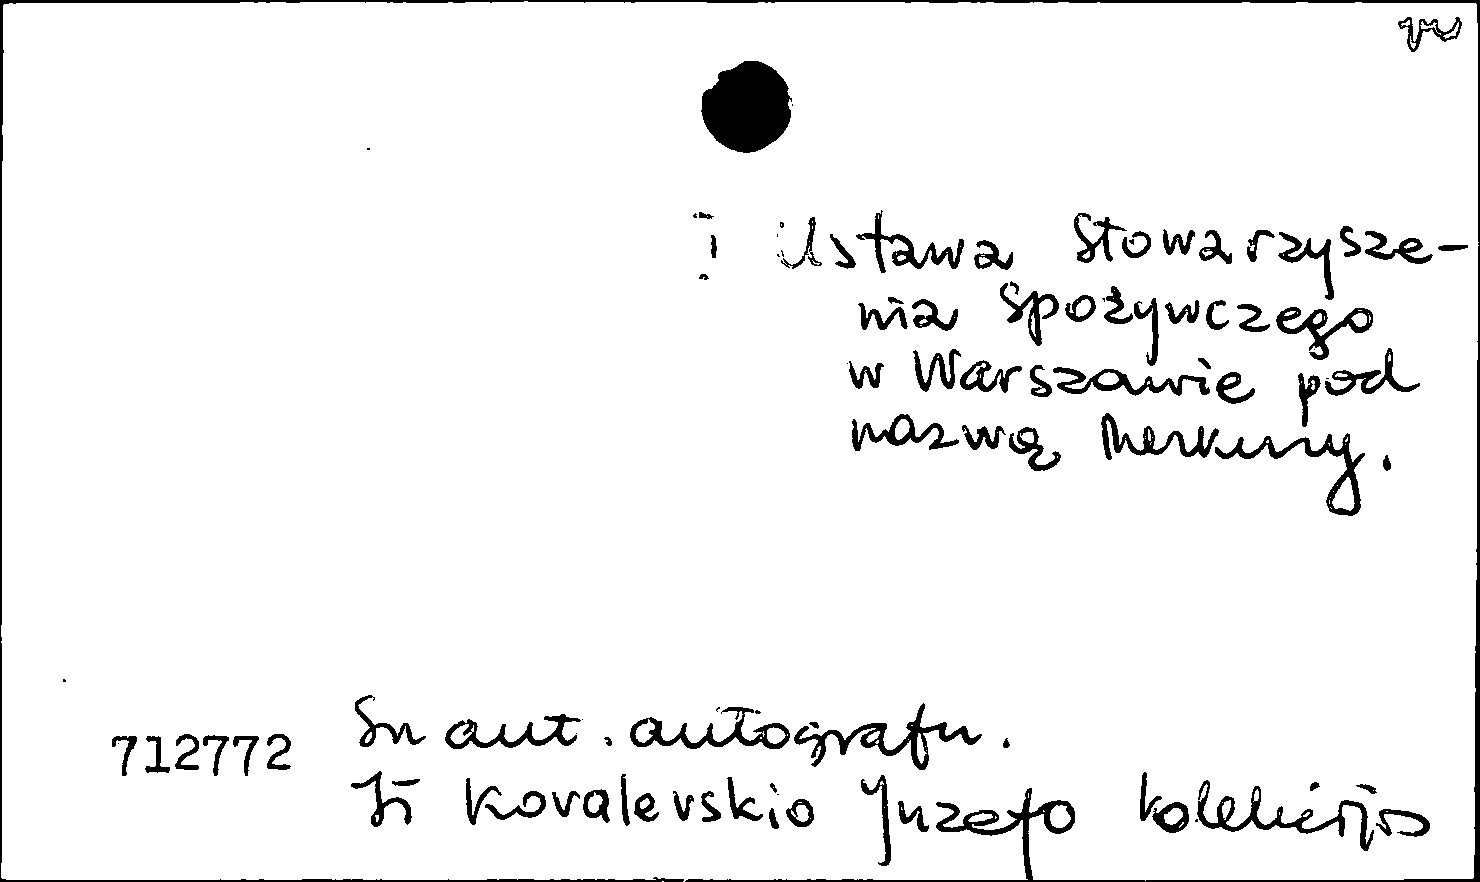 Ustawa Stowarzysze-
nia Spożywczego
w Warszawie pod
nazwą Merkury.
Su aut. autografu.
712772
Iš Kovalevskio Juzefo kolekcijos